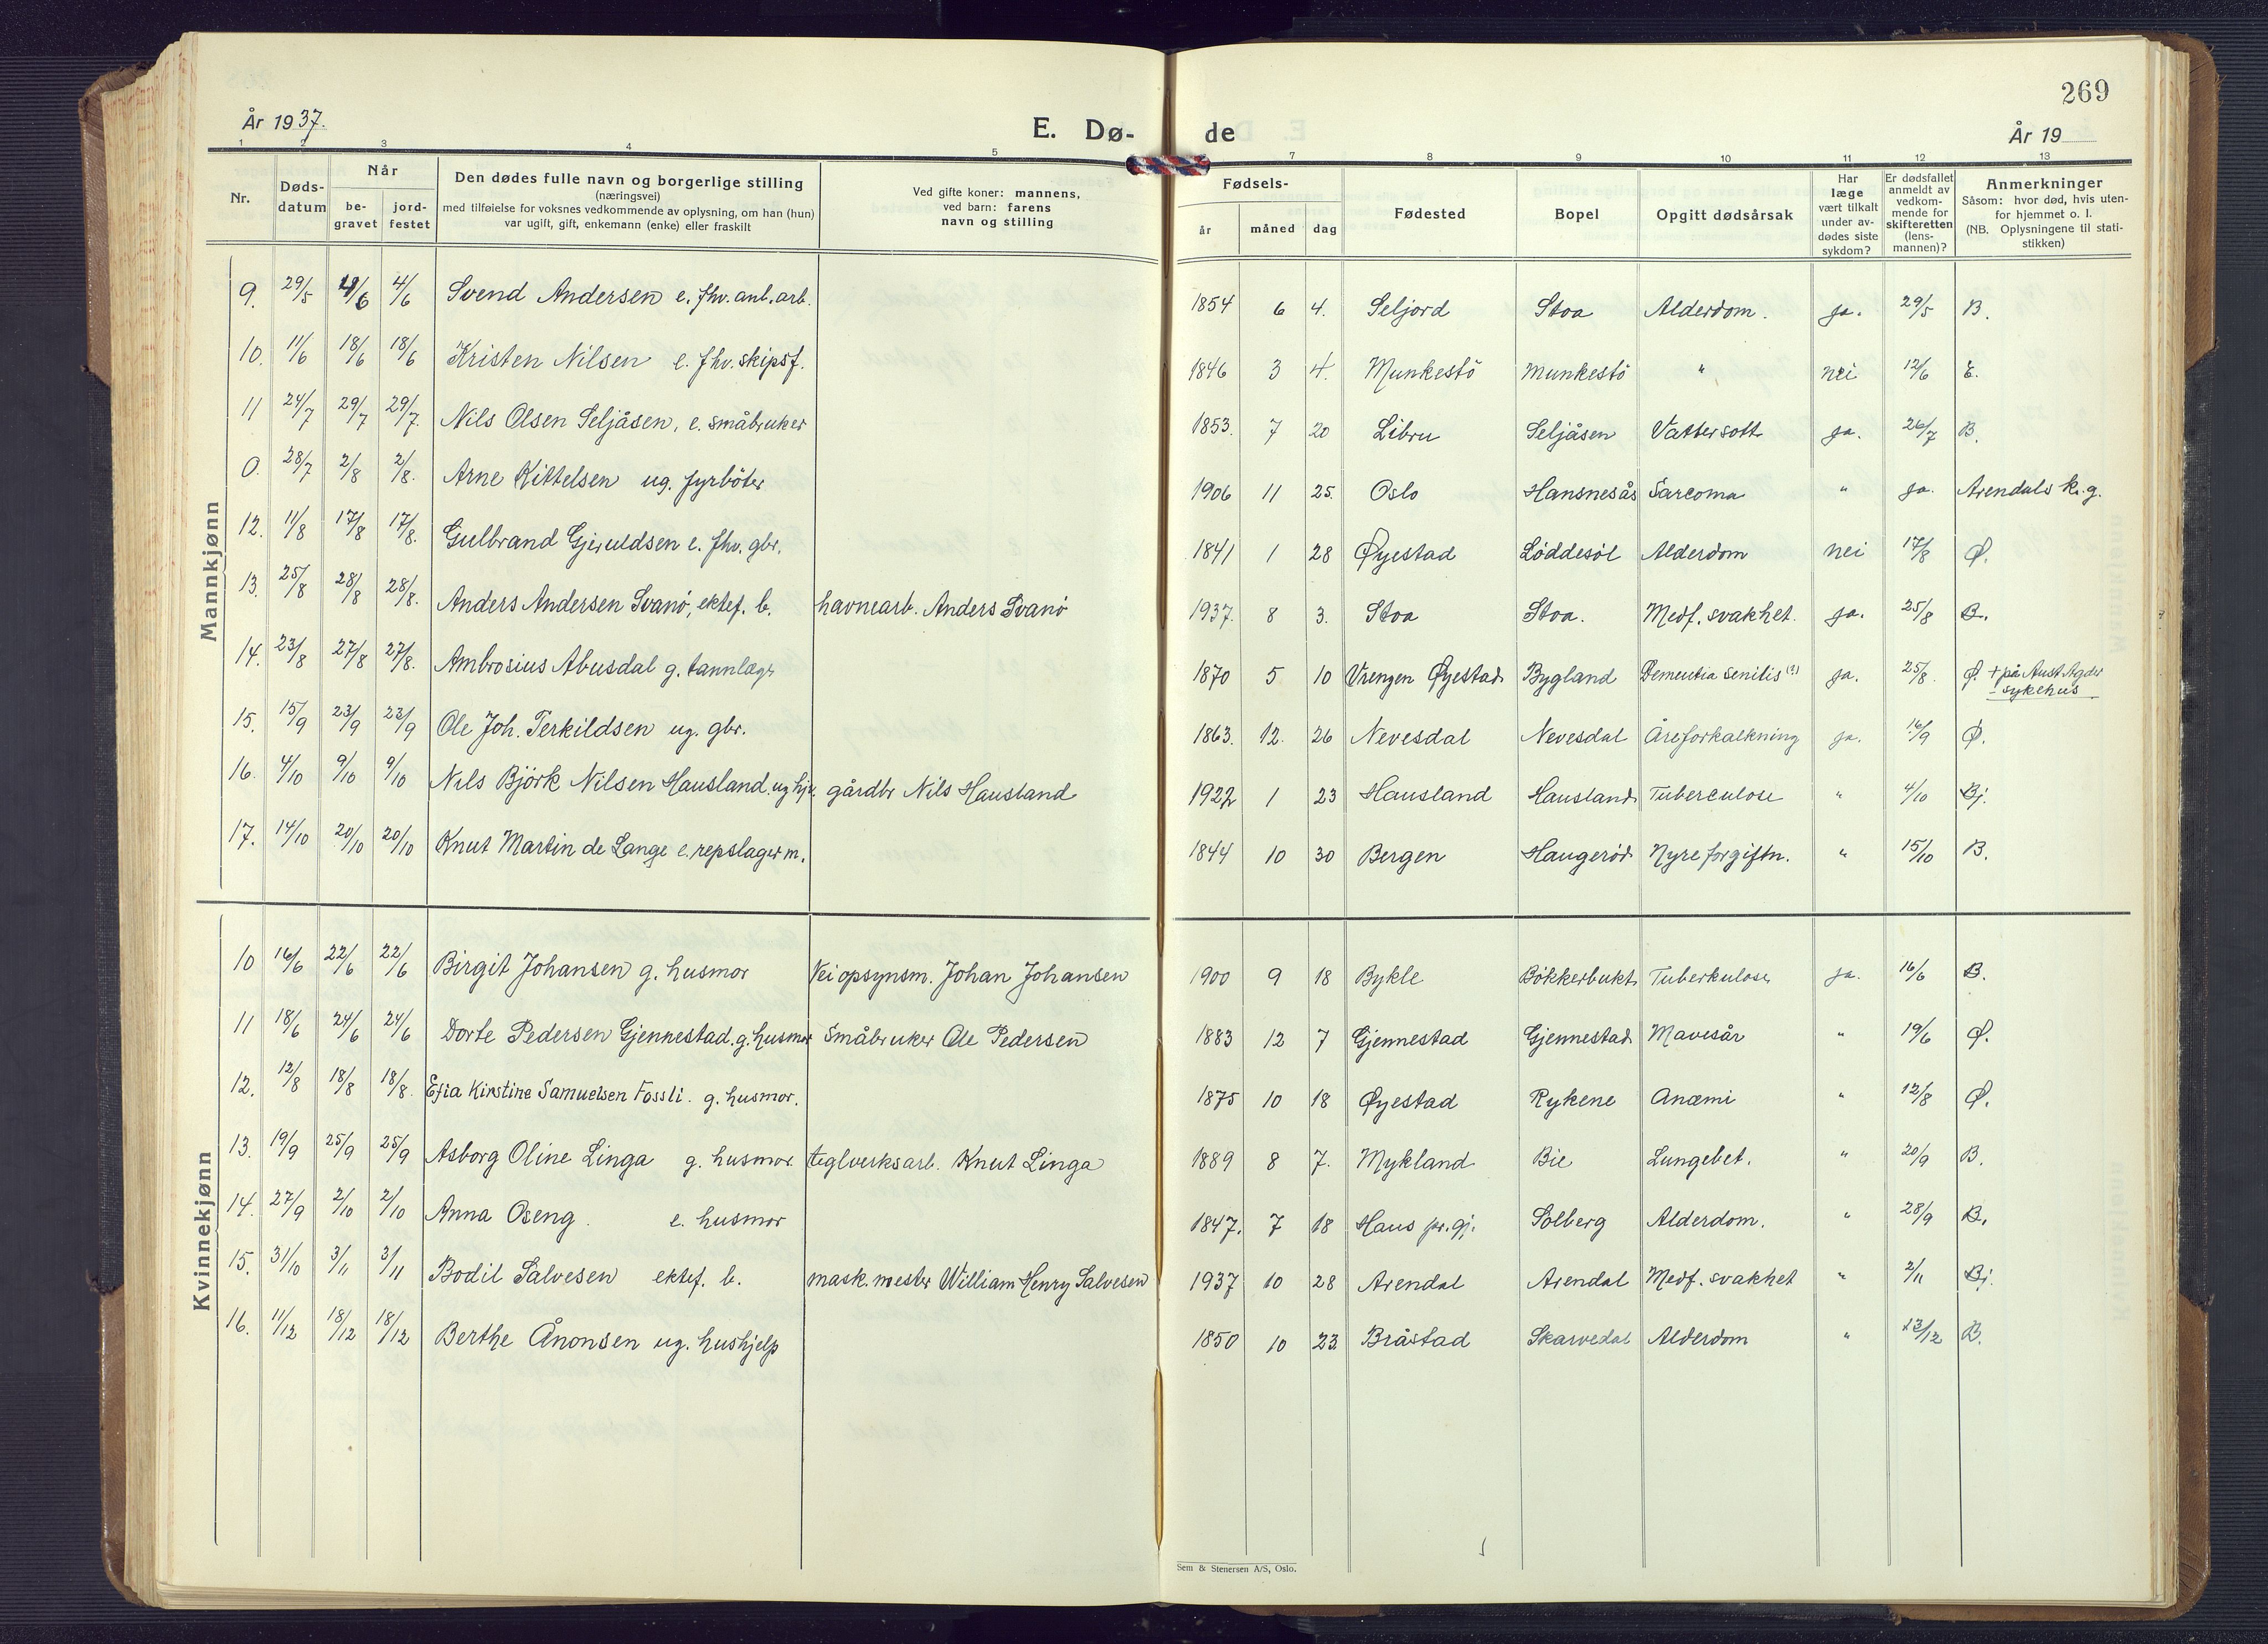 269
År 1937.
E. Dø-
de
År 19
1 2 3 4 5
7 8 9 10 11 12 13
Nr.
Døds-
datum
Når
be-
gravet
jord-
festet
Den dødes fulle navn og borgerlige stilling
(næringsvei)
med tilføielse for voksnes vedkommende av oplysning, om han (hun)
var ugift, gift, enkemann (enke) eller fraskilt
Ved gifte koner: mannens,
ved barn: farens
navn og stilling
Fødsels-
år måned dag
Fødested
Bopel
Opgitt dødsårsak
Har
læge
vært tilkalt
under av-
dødes siste
sykdom?
Er dødsfallet
anmeldt av
vedkom-
mende for
skifteretten
(lens-
mannen)?
Anmerkninger
Såsom: hvor død, hvis uten-
for hjemmet o. l.
(NB. Oplysningene til stati-
stikken)
Mannkjønn
9. 29/5 4/6 4/6 Svend Andersen e. fhv. anl. arb. 1854 6 4. Seljord Stoa Alderdom. ja. 29/5 B.
10. 11/6 18/6 18/6 Kristen Nilsen e. fhv. skipsf. 1846 3 4. Munkestö Munkestö " nei 12/6 E.
11 24/7 29/7 29/7. Nils Olsen Seljåsen, e. småbruker 1853. 7 20 Libru Seljåsen Vattersott ja. 26/7 B.
0. 28/7 2/8 2/8. Arne Kittelsen ug. fyrböter 1906 11 25. Oslo Hansnesås Sarcoma " ja. Arendals k.g.
12. 11/8 17/8 17/8. Gulbrand Gjeruldsen e. fhv. gbr. 1841 1 28 Øyestad Løddesøl Alderdom nei 17/8 Ø.
13. 25/8 28/8 28/8. Anders Andersen Svanö, ektef. b. havnearb. Anders Svanö 1937. 8 3. Stoa Stoa. Medf. svakhet. ja. 25/8 B.
14. 23/8 27/8 27/8. Ambrosius Abusdal g. tannlæge 1870 5 10 Vrengen Øyestad Bygland Dementia senilis (?) ja. 25/8. Ø. + på Aust Agder
sykehus
15. 15/9 23/9 23/9 Ole Joh. Terkildsen ug. gbr. 1863. 12. 26 Nevesdal Nevesdal Åreforkalkning ja. 16/9 Ø.
16. 4/10 9/10 9/10 Nils Björk Nilsen Hausland. ug hj.v. gårdbr Nils Hausland 1922 1 23 Hausland Hausland Tuberculose " 4/10 Bj.
17. 14/10 20/10 20/10 Knut Martin de Lange e. repslager m. 1844 10 30 Bergen Haugeröd Nyreforgiftn. " 15/10 B.
Kvinnekjønn
10 16/6 22/6 22/6 Birgit Johansen g. husmor Vei opsynsm. Johan Johansen 1900 9 18 Bykle Bökkerbukt Tuberkulose ja. 16/6 B.
11 18/6 24/6 24/6 Dorte Pedersen Gjennestad. g. husmor Småbruker Ole Pedersen 1883 12 7 Gjennestad Gjennestad Mavesår " 19/6 Ø.
12. 12/8 18/8 18/8. Efia Kirstine Samuelsen Fossli. g. husmor. 1875 10 18 Øyestad Rykene Anæmi " 12/8 Ø.
13. 19/9 25/9 25/9 Asborg Oline Linga g. husmor. teglverksarb. Knut Linga 1889 8 7. Mykland Bie Lungebet. " 20/9 B.
14. 27/9 2/10 2/10 Anna Oseng. e. husmor 1847. 7 18 Haus pr.gj. Solberg Alderdom. " 28/9 B.
15. 31/10 3/11 3/11 Bodil Salvesen ektef. b. mask. mester William Henry Salvesen 1937 10 28 Arendal Arendal Medf. svakhet " 2/11 Bj.
16. 11/12 18/12 18/12 Berthe Ånonsen ug. hushjelp 1850 10 23 Bråstad Skarvedal Alderdom " 13/12 B.
Sem & Stenersen A/S, Oslo.